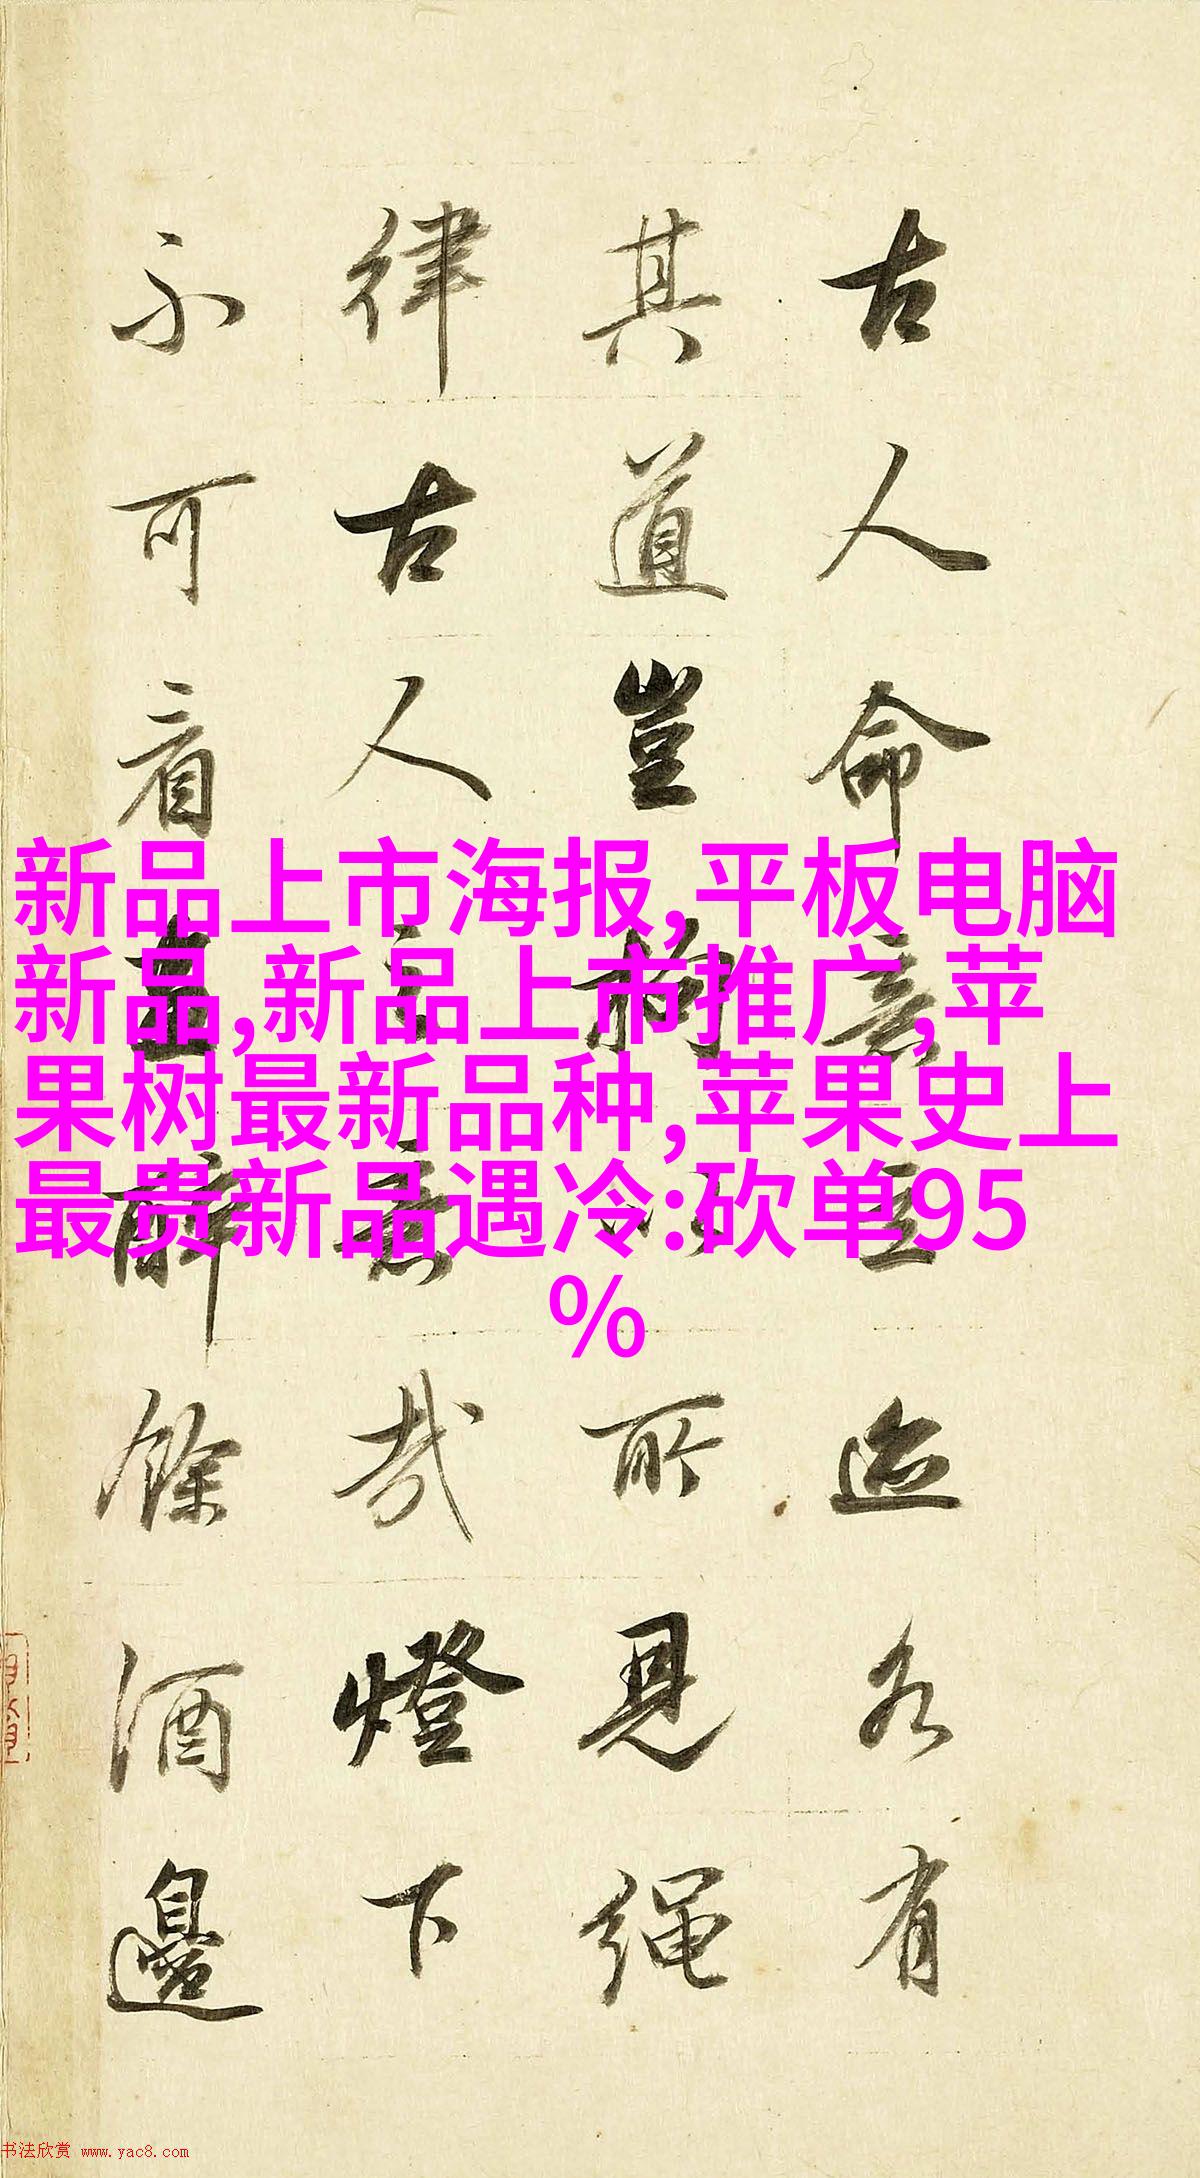 古人命意立迹各有
其道豈拘以所見繩
律古人之意哉燈下
不可看畫醉餘酒邊
新品上市海报,平板电脑
新品,新品上市推广,苹
果树最新品种,苹果史上
最贵新品遇冷:砍单95
%
书法欣赏 www.yac8.com